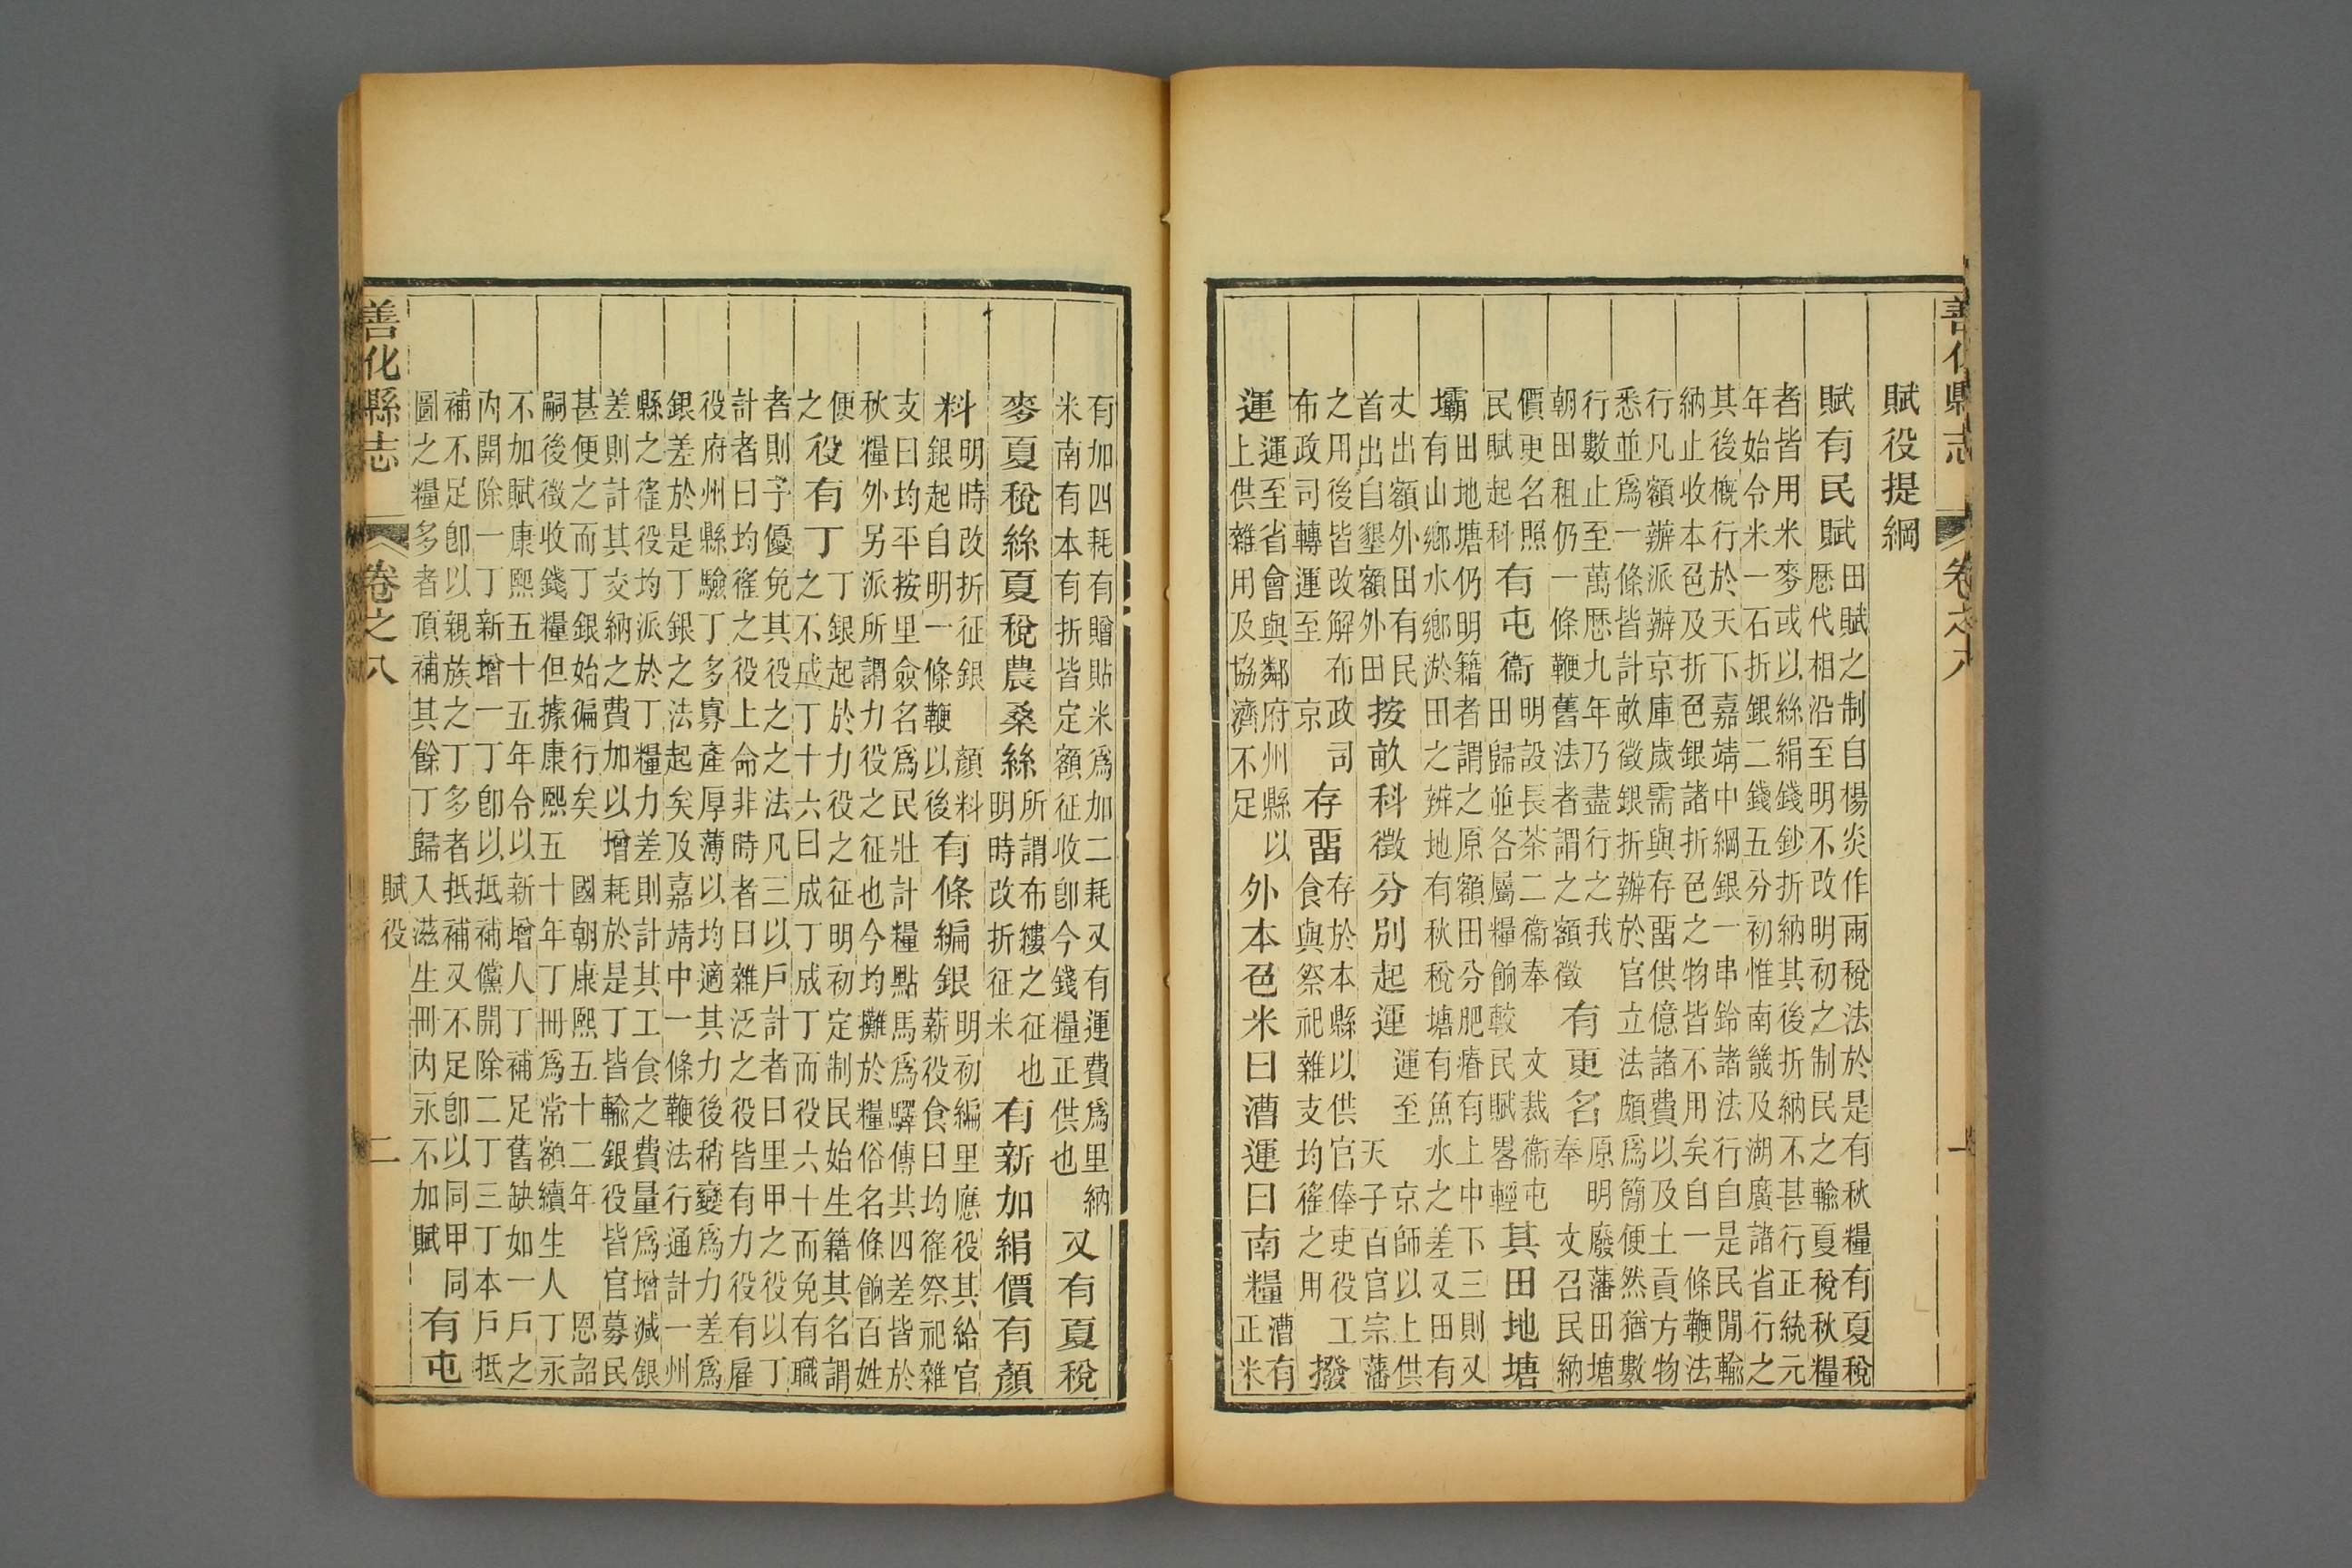 善化縣志 卷之八 一
賦役提綱
賦有民賦
田賦之制自楊炎作兩稅法於是有秋糧有夏稅
歷代相沿至明不改明初之制民之輸夏稅秋糧
者皆用米麥或以絲絹錢鈔折納其後折納不甚行正統元
年始令米一石折銀二錢五分初惟南畿及湖廣諸省行之
其後概行於天下嘉靖中綱銀一串鈴諸法行自是民閒輸
納止收本色及折色銀諸折色之物皆不用矣自一條鞭法
行凡額辦派辦京庫歲需與存畱供億諸費以及土貢方物
悉並爲一條皆計畝徵銀折辦於官立法頗爲簡便然猶數
行數止至萬厯九年乃盡行之我
朝田租仍一條鞭舊法者謂之額徵
有更名
原明廢藩田塘
奉文召民納
價更名照
民賦起科
有屯衞
明設長茶二衞奉文裁衞屯
田歸並各屬糧餉較民賦畧輕
其田地塘
壩
田地塘仍明籍者謂之原額田分肥瘠有上中下三則又
有山鄉水鄉淤田之辨地有秋稅塘有魚水之差又田有
丈出額外田有民
首出自墾額外田
按畝科徵分別起運
運至京師以上供
天子百官宗藩
之用後皆改解布政司
布政司轉運至京
存畱
存於本縣以供官俸吏役工
食與祭祀雜支均徭之用
撥
運
運至省會與鄰府州縣以
上供雜用及協濟不足
外本色米曰漕運曰南糧
漕有
正米
有加四耗有贈貼米爲加二耗又有運費爲里納
米南有本有折皆定額征收卽今錢糧正供也
又有夏稅
麥夏稅絲夏稅農桑絲
所謂布縷之征也
明時改折征米
有新加絹價有顏
料
明時改折征銀 顏料
銀起自明一條鞭以後
有條編銀
明初編里應役其給官
薪役食曰均徭祭祀雜
支曰均平按里僉名爲民壯計糧點馬爲驛傳共四差皆於
秋糧外另派所謂力役之征也今均攤於糧俗名條餉百姓
便
之
役有丁
丁銀起於力役之征明初定制民始生籍其名謂
之不成丁十六曰成丁成丁而役六十而免有職
者則予優免其役之之法凡三以戶計者曰里甲之役以丁
計者曰均徭之役上命非時者曰雜泛之役皆有力役有雇
役府州縣驗丁多寡產厚薄以均適其力後稍變爲力差爲
銀差於是丁銀之法起矣及嘉靖中一條鞭法行通計一州
縣之徭役均派於丁糧力差則計其工食之費量爲增減銀
差則計其交納之費加以增耗於是丁皆輸銀役皆官募民
甚便之而丁銀始徧行矣 國朝康熙五十二年 恩詔
嗣後徵收錢糧但據康熙五十年丁冊爲常額續生人丁永
不加賦康熙五十五年令以新增人丁補足舊缺如一戶之
內開除一丁新增一丁卽以抵補儻開除二丁三丁本戶抵
補不足卽以親族之丁多者抵補又不足卽以同甲同
圖之糧多者頂補其餘丁歸入滋生冊內永不加賦
有屯
善化縣志 卷之八 賦役 二